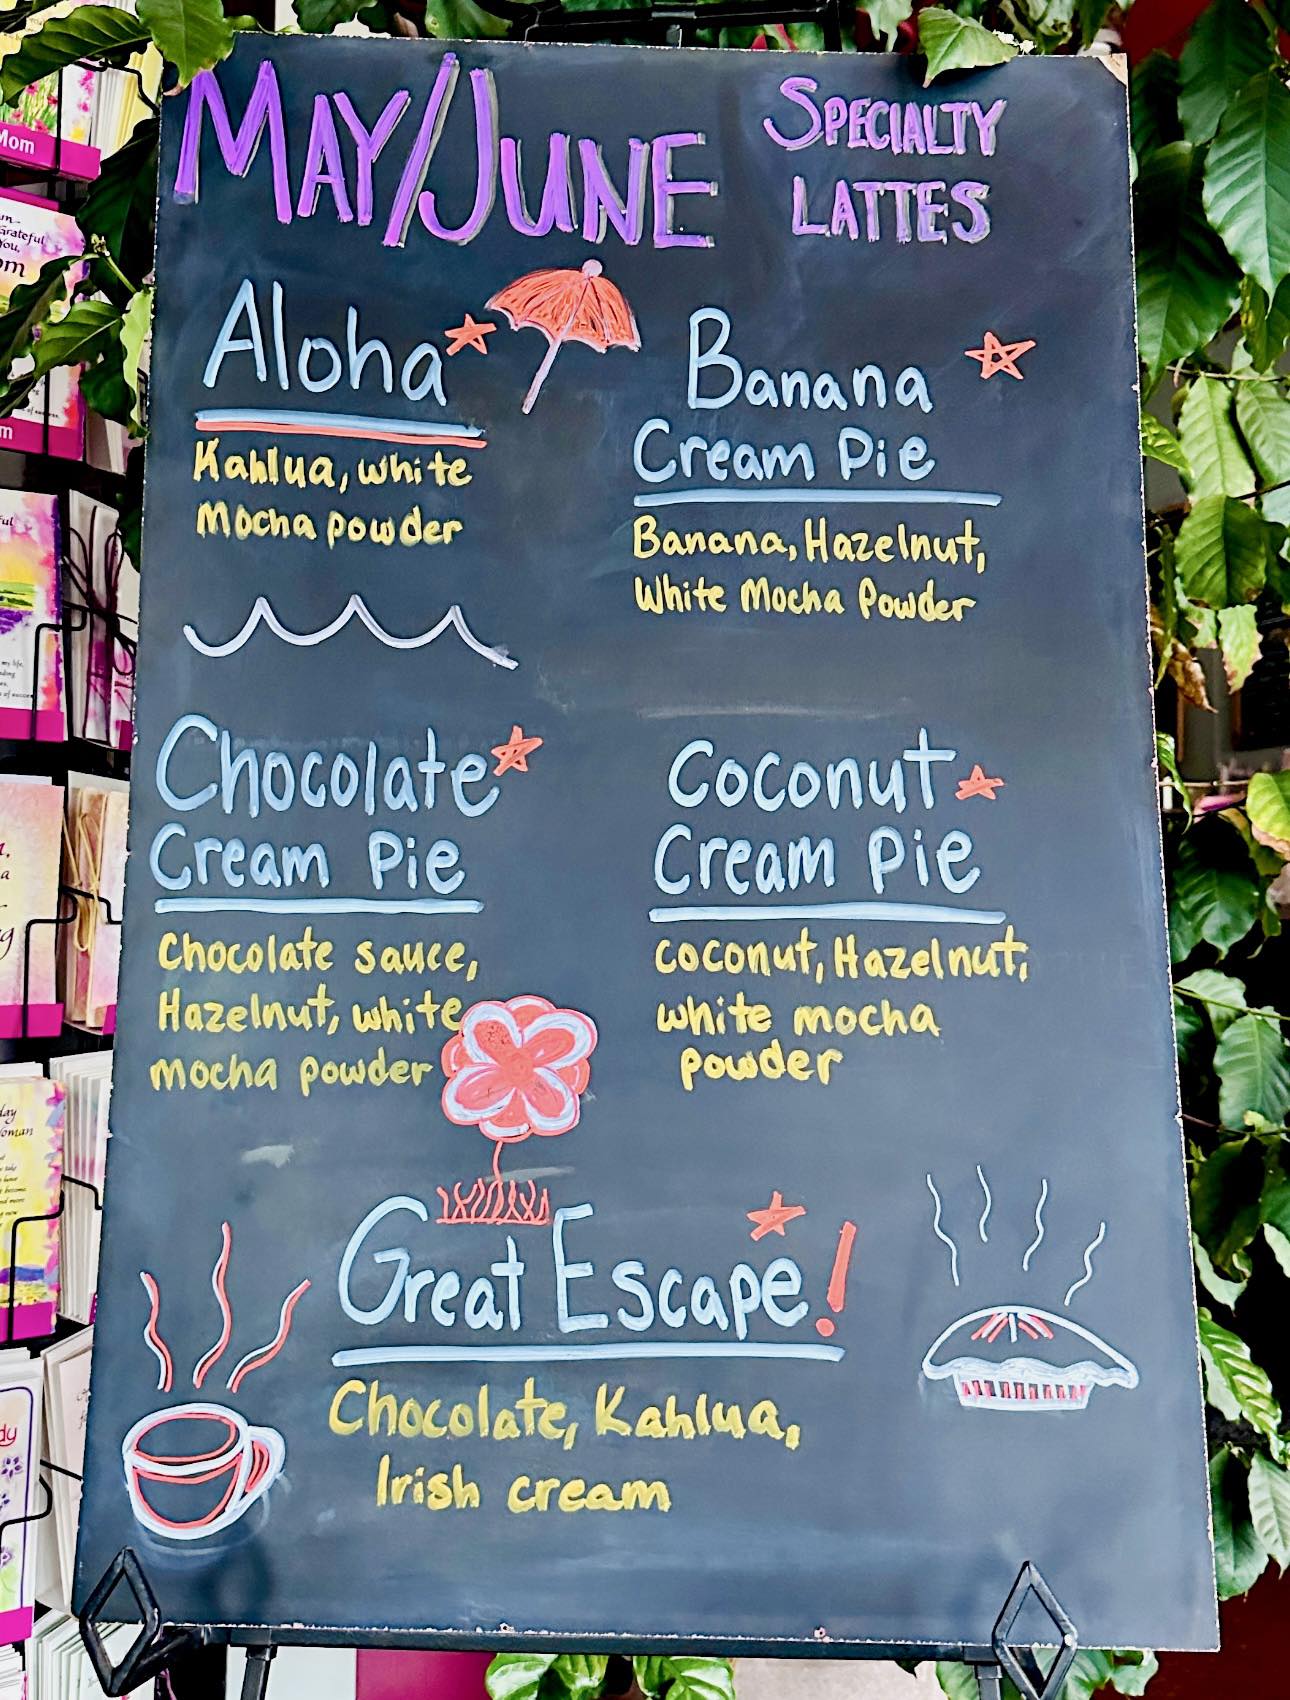 MAY/JUNE
SPECIALTY
LATTES
Aloha
Kahlua, white
Mocha powder
Banana
Cream Pie
Banana, Hazelnut,
White Mocha Powder
Chocolate
Cream Pie
Chocolate sauce,
Hazelnut, white
mocha powder
Coconut
Cream Pie
coconut, Hazelnut,
white mocha
powder
Great Escape!
Chocolate, Kahlua,
Irish cream
Mom
Grateful
You,
my life.
of success